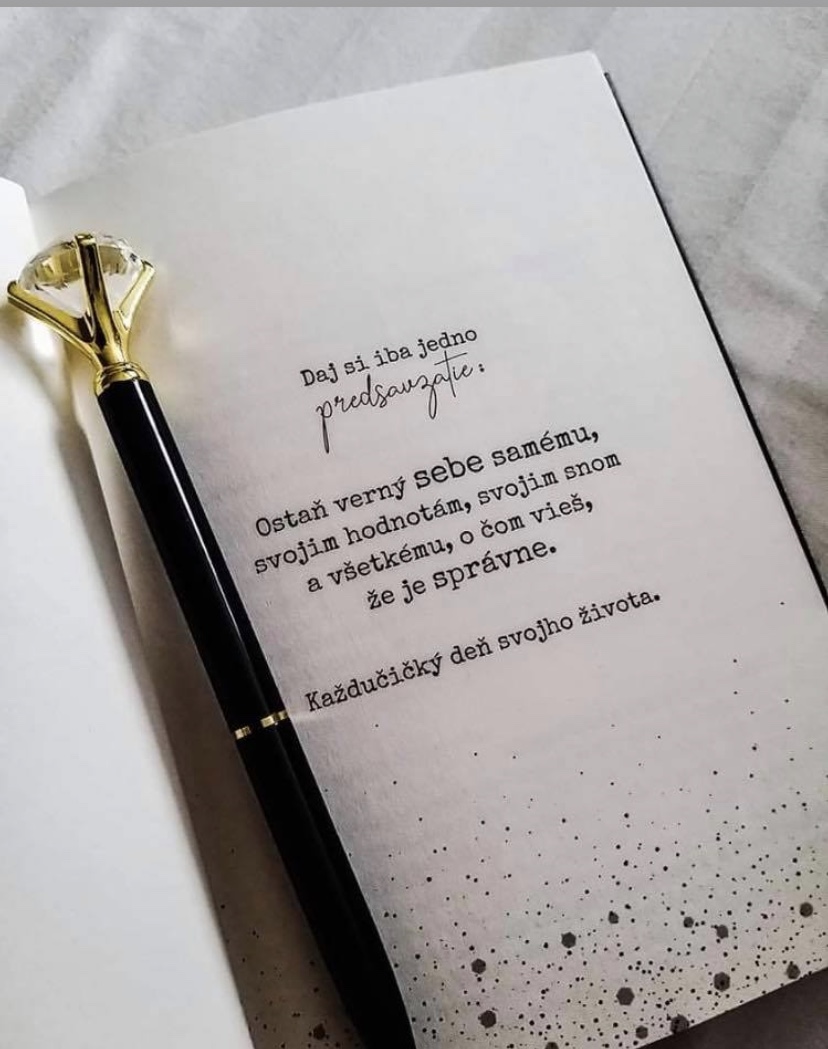 Daj si iba jedno
predsavzatie:
Ostaň verný sebe samému,
svojim hodnotám, svojim snom
a všetkému, o čom vieš,
že je správne.
Každučičký deň svojho života.